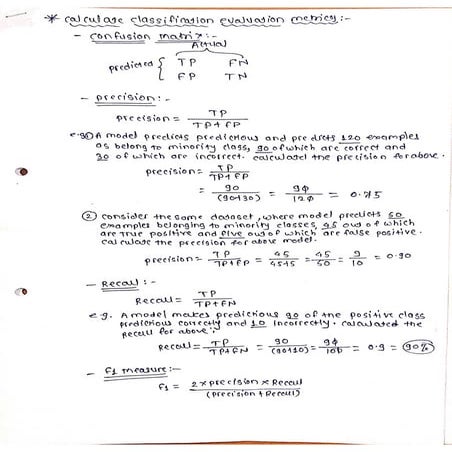 * calculate classification evaluation metrics:-
- confusion matrix:-
Actual
predicted { TP FN
FP TN
- precision:-
precision = TP / TP+FP
e.g.① A model predicts predictions and predicts 120 examples
as belong to minority class, 90 of which are correct and
30 of which are incorrect. calculated the precision for above.
precision = TP / TP+FP
= 90 / (90+30) = 90 / 120 = 0.75
② consider the same dataset, where model predicts 50
examples belonging to minority classes, 45 out of which
are true positive and five out of which are false positive.
calculate the precision for above model.
precision = TP / TP+FP = 45 / 45+5 = 45 / 50 = 9 / 10 = 0.90
- Recall:-
Recall = TP / TP+FN
e.g. A model makes predictions 90 of the positive class
predictions correctly and 10 incorrectly. calculated the
Recall for above:-
Recall = TP / TP+FN = 90 / (90+10) = 90 / 100 = 0.9 = 90%
- F1 measure:-
F1 = 2 x precision x Recall / (precision + Recall)